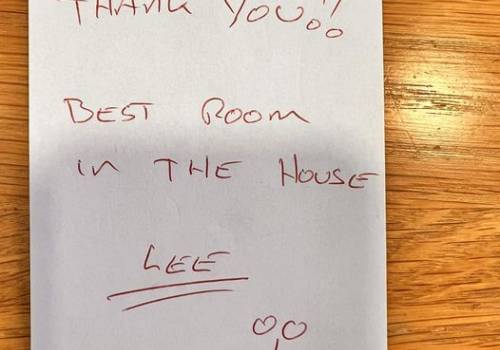 THANK YOU!!
BEST ROOM
IN THE HOUSE
LEE